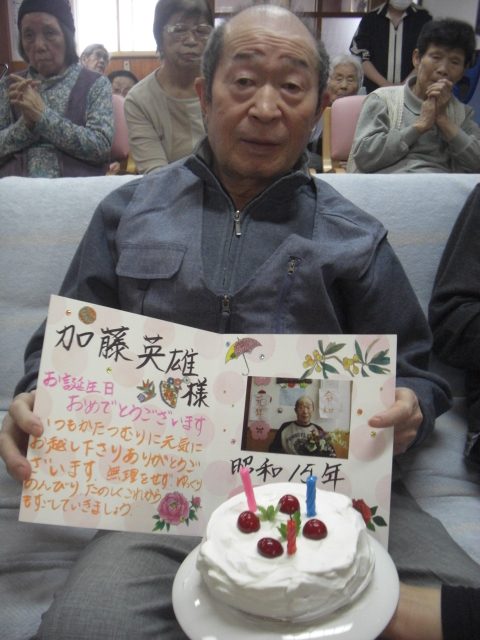 加藤英雄
様
お誕生日
おめでとうございます
いつもかたつむりに元気に
お越し下さりありがとうご
ざいます。無理をせず、ゆっくり
のんびり、たのしくこれから
もすごしていきましょう。
昭和15年